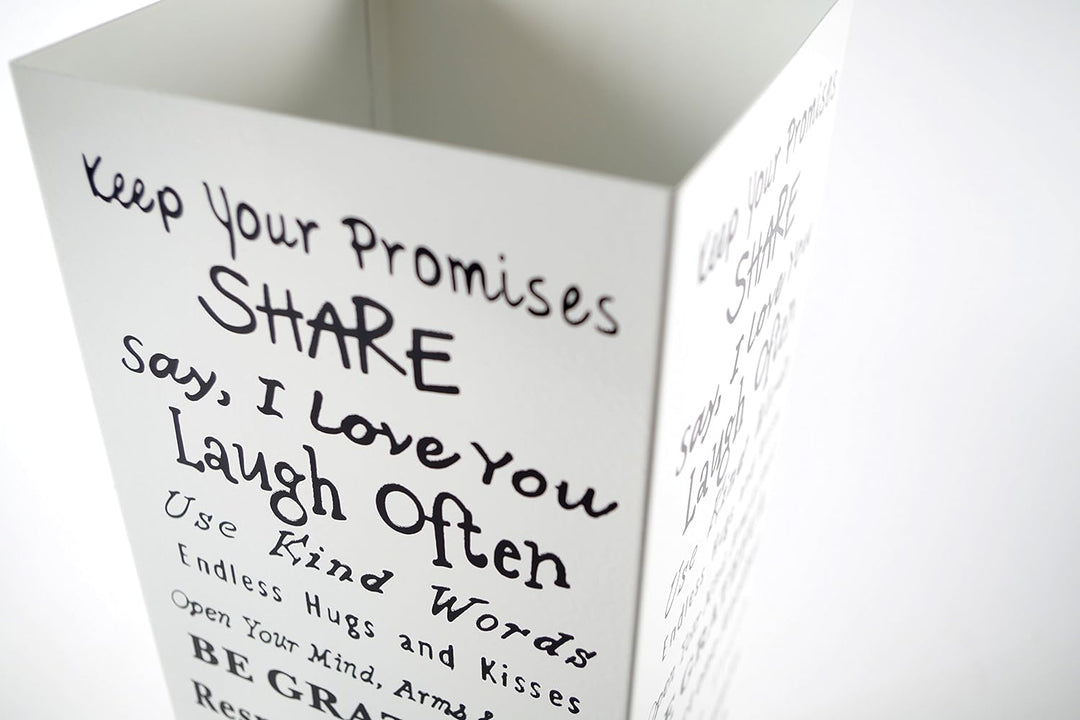 Keep Your Promises
SHARE
Say, I Love You
Laugh Often
Use Kind Words
Endless Hugs and Kisses
Open Your Mind, Arms &
BE
Keep Your Promises
SHARE
I Love You
Say,
Laugh Often
Use Kind
Endless